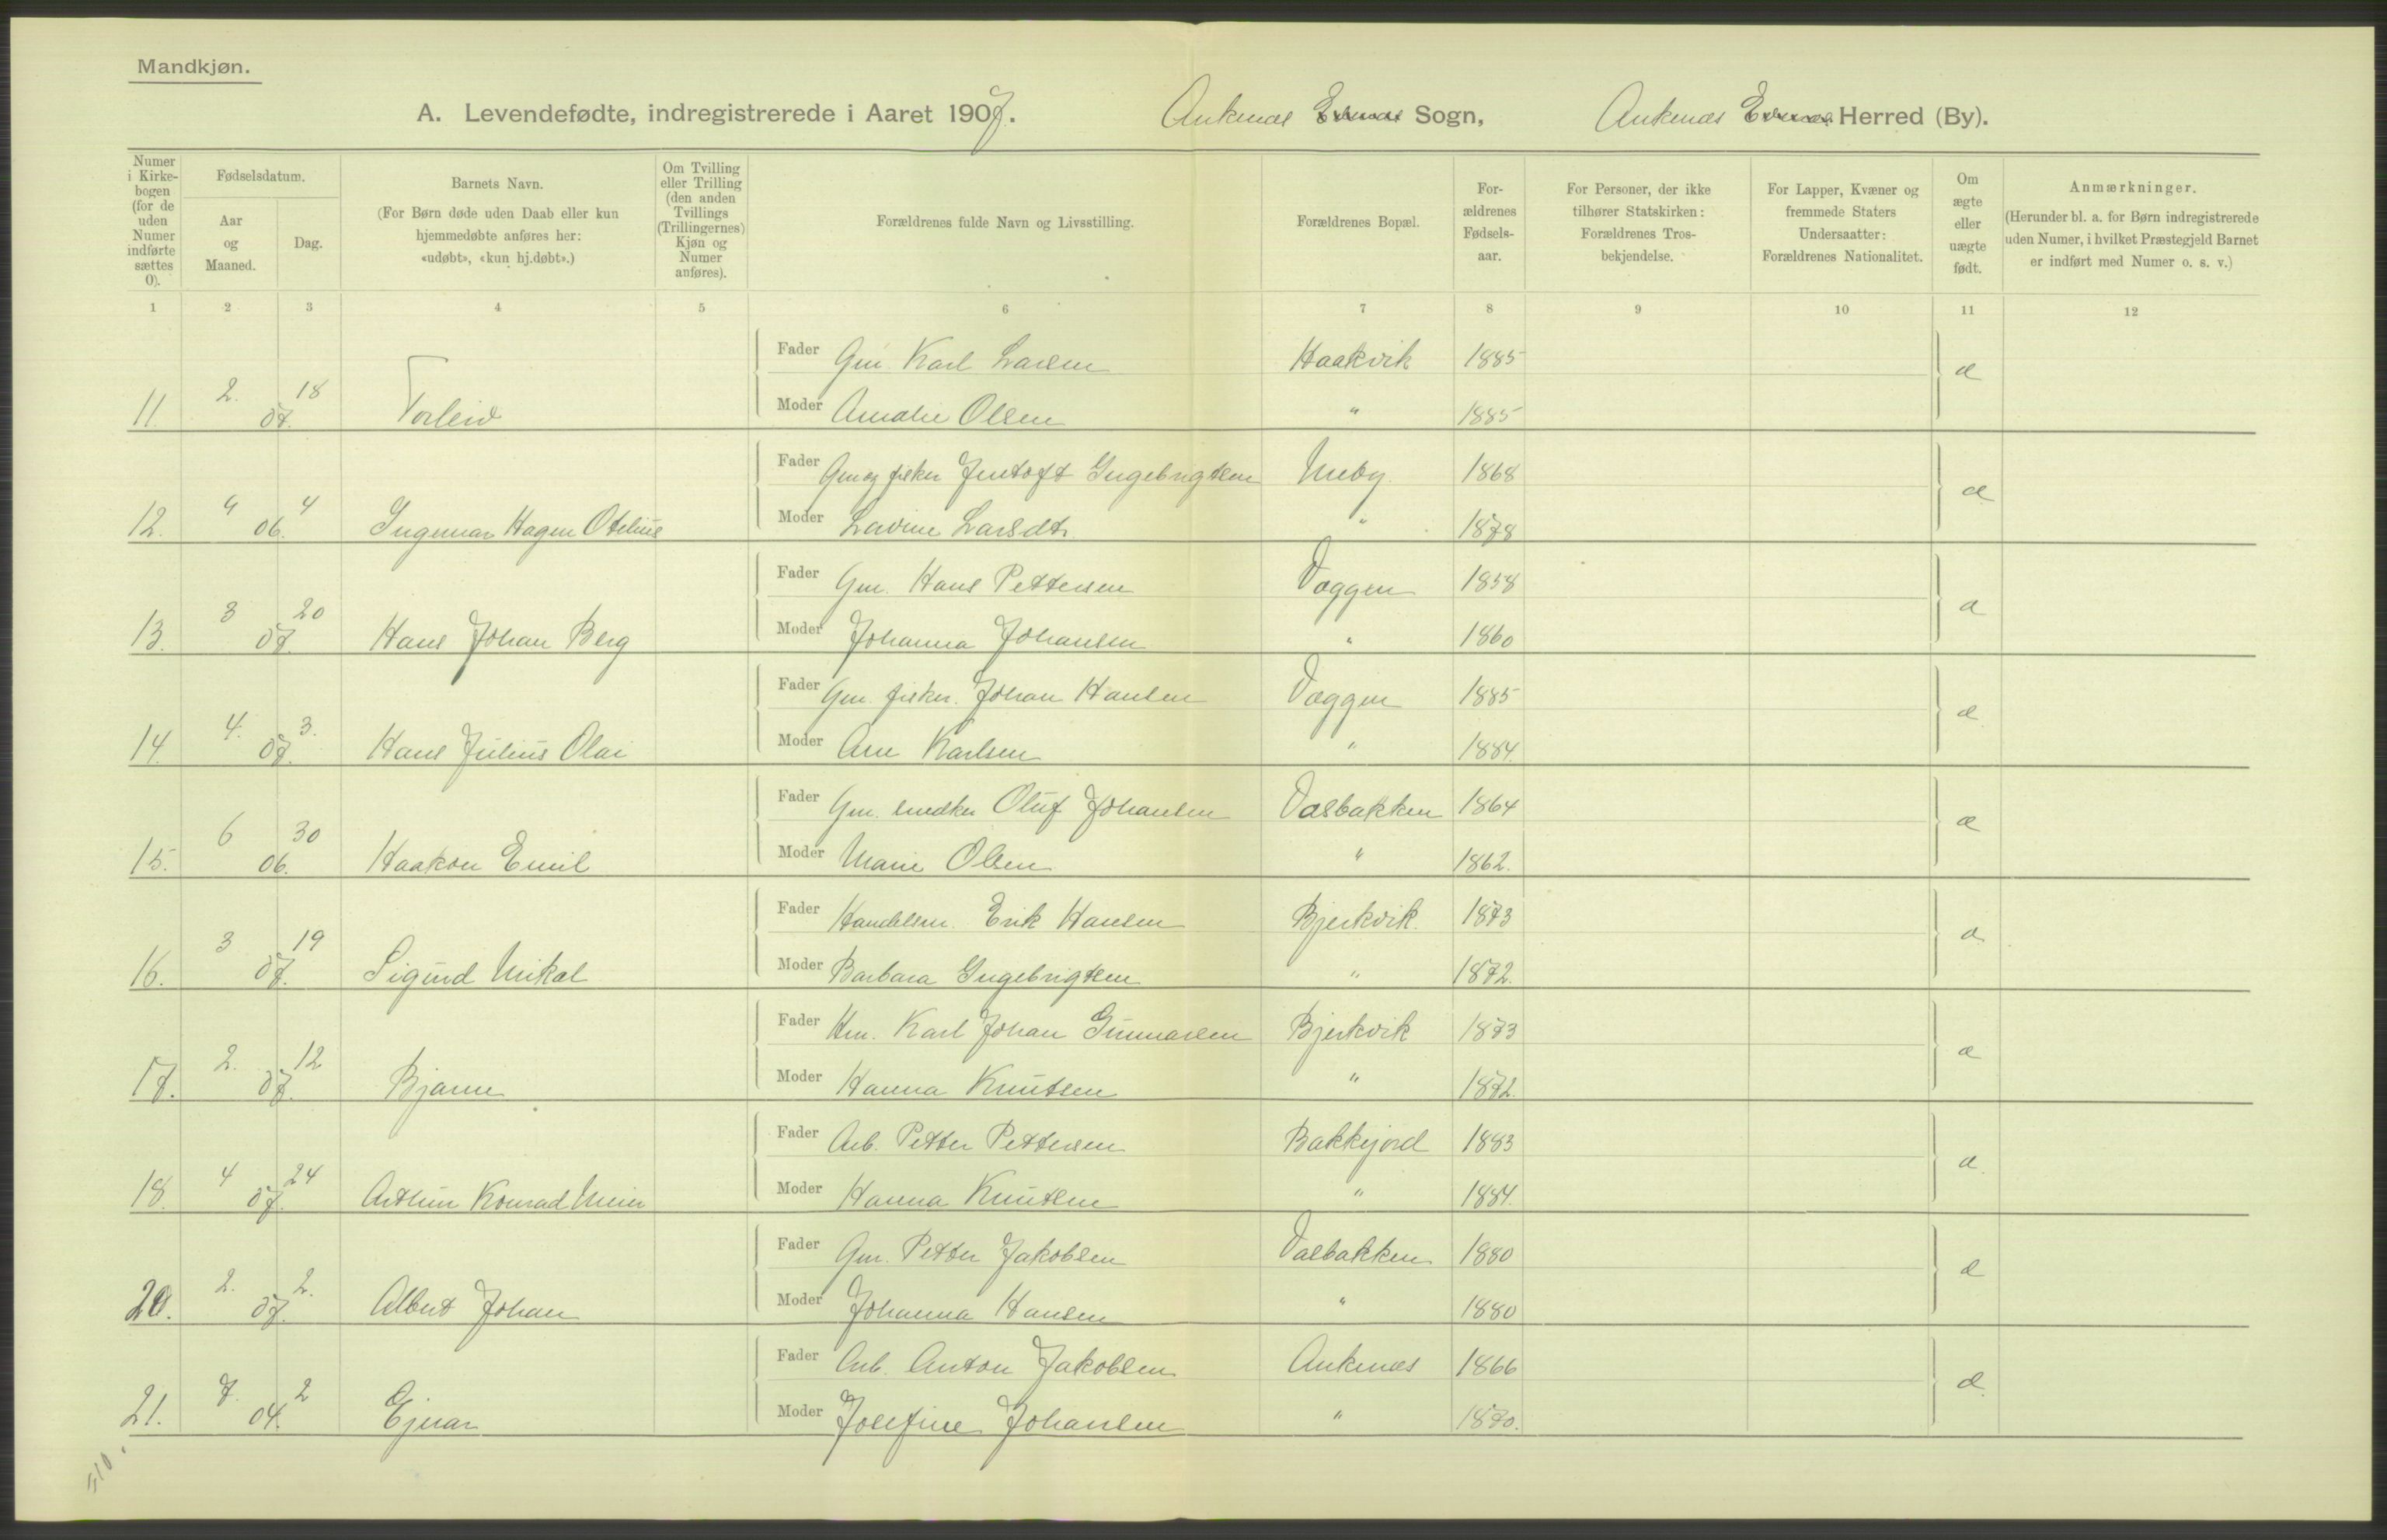 Mandkjøn.
A. Levendefødte, indregistrerede i Aaret 1907. Ankenæs Evenæs Sogn, Ankenæs Evenæs Herred (By).
Numer i Kirkebogen (for de uden Numer indførte sættes 0).
Fødselsdatum.
Aar og Maaned.
Dag.
Barnets Navn.
(For Børn døde uden Daab eller kun hjemmedøbte anføres her: «udøbt», «kun hj.døbt».)
Om Tvilling eller Trilling (den anden Tvillings (Trillingernes) Kjøn og Numer anføres).
Forældrenes fulde Navn og Livsstilling.
Forældrenes Bopæl.
Forældrenes Fødselsaar.
For Personer, der ikke tilhører Statskirken: Forældrenes Trosbekjendelse.
For Lapper, Kvæner og fremmede Staters Undersaatter: Forældrenes Nationalitet.
Om ægte eller uægte født.
Anmærkninger.
(Herunder bl. a. for Børn indregistrerede uden Numer, i hvilket Præstegjeld Barnet er indført med Numer o. s. v.)
1 2 3 4 5 6 7 8 9 10 11 12
Fader Gm. Karl Larsen Haakvik 1885 æ
11. 2. 07. 18 Torleiv Moder Amalie Olsen " 1885
Fader Gm og fisker Jentoft Ingebrigtsen Meby. 1868 æ
12. 9 06. 4 Ingemar Hagen Otelius Moder Lavine Larsdtr. " 1878
Fader Gm. Hans Pettersen Vaggen 1858 æ
13. 3 07. 20 Hans Johan Berg Moder Johanna Johansen " 1860
Fader Gm. fisker. Johan Hansen Vaggen 1885 æ
14. 4. 07. 3. Hans Julius Olai Moder Ane Karlsen " 1884.
Fader Gm. snedker Oluf Johansen Valbakken 1864 æ
15. 6 06. 30 Haakon Emil Moder Marie Olsen " 1862.
Fader Handelsm. Erik Hansen Bjerkvik. 1873 æ
16. 3 07. 19 Sigurd Mikal Moder Barbara Ingebrigtsen " 1872.
Fader Hm. Karl Johan Gunnarsen Bjerkvik 1873 æ
17. 2. 07. 12 Bjarne Moder Hanna Knutsen " 1872.
Fader Arb. Petter Pettersen Bakkejord 1883 æ.
18. 4 07. 24 Arthur Konrad Meier Moder Hanna Knutsen " 1884.
Fader Gm. Petter Jakobsen Valbakken 1880 æ
20. 2. 07. 2. Albert Johan Moder Johanna Hansen " 1880
Fader Arb. Anton Jakobsen Ankenæs 1866 æ.
21. 7. 04. 2 Ejnar Moder Josefine Johansen " 1870.
510.